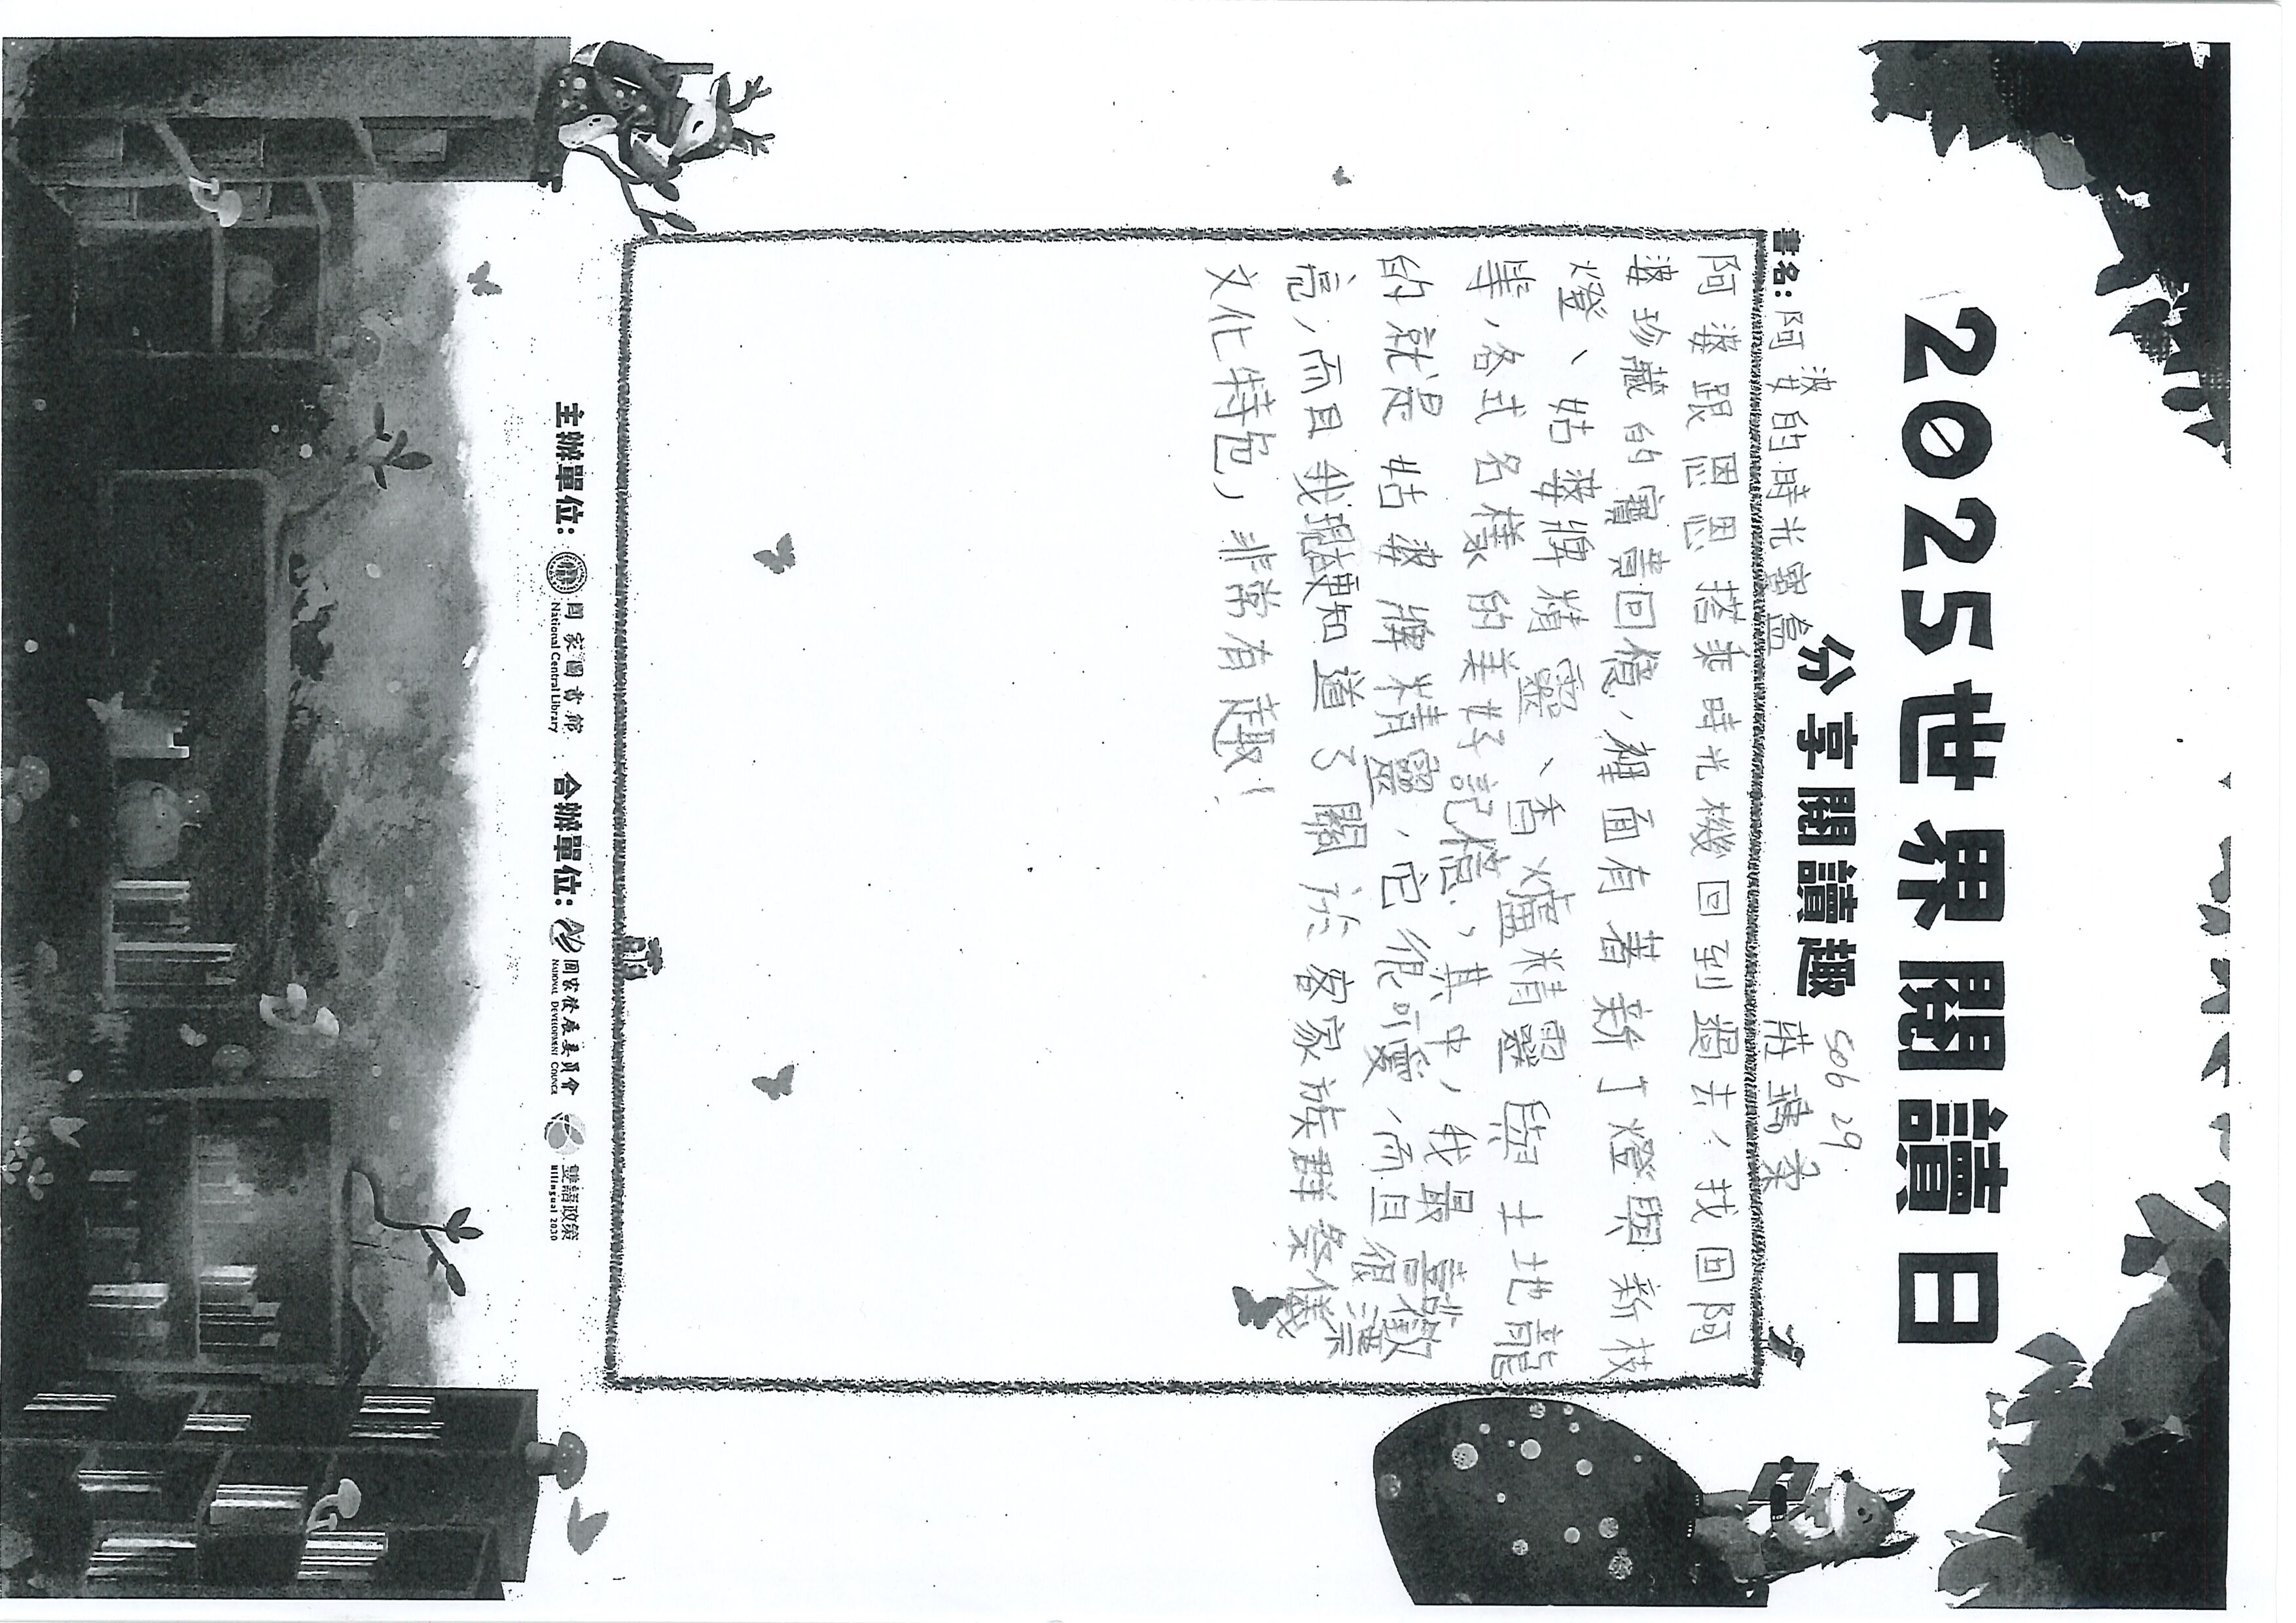 2025世界閱讀日
分享閱讀趣
506 29
書名:阿婆的時光寶盒
阿婆跟恩恩搭乘時光機回到過去,找回阿
婆珍藏的寶貴回憶,裡面有著新丁燈與新枝
燈、姑婆牌精靈、香爐精靈與土地龍
等,各式名樣的美好記憶,其中,我最喜歡
的就是姑婆牌精靈,它很可愛,而且很漂
亮,而且我現知道了關於客家族群祭儀
文化特色,非常有趣!
主辦單位: 國家圖書館 National Central Library 合辦單位: 國家發展委員會 NATIONAL DEVELOPMENT COUNCIL 雙語政策 Bilingual 2030